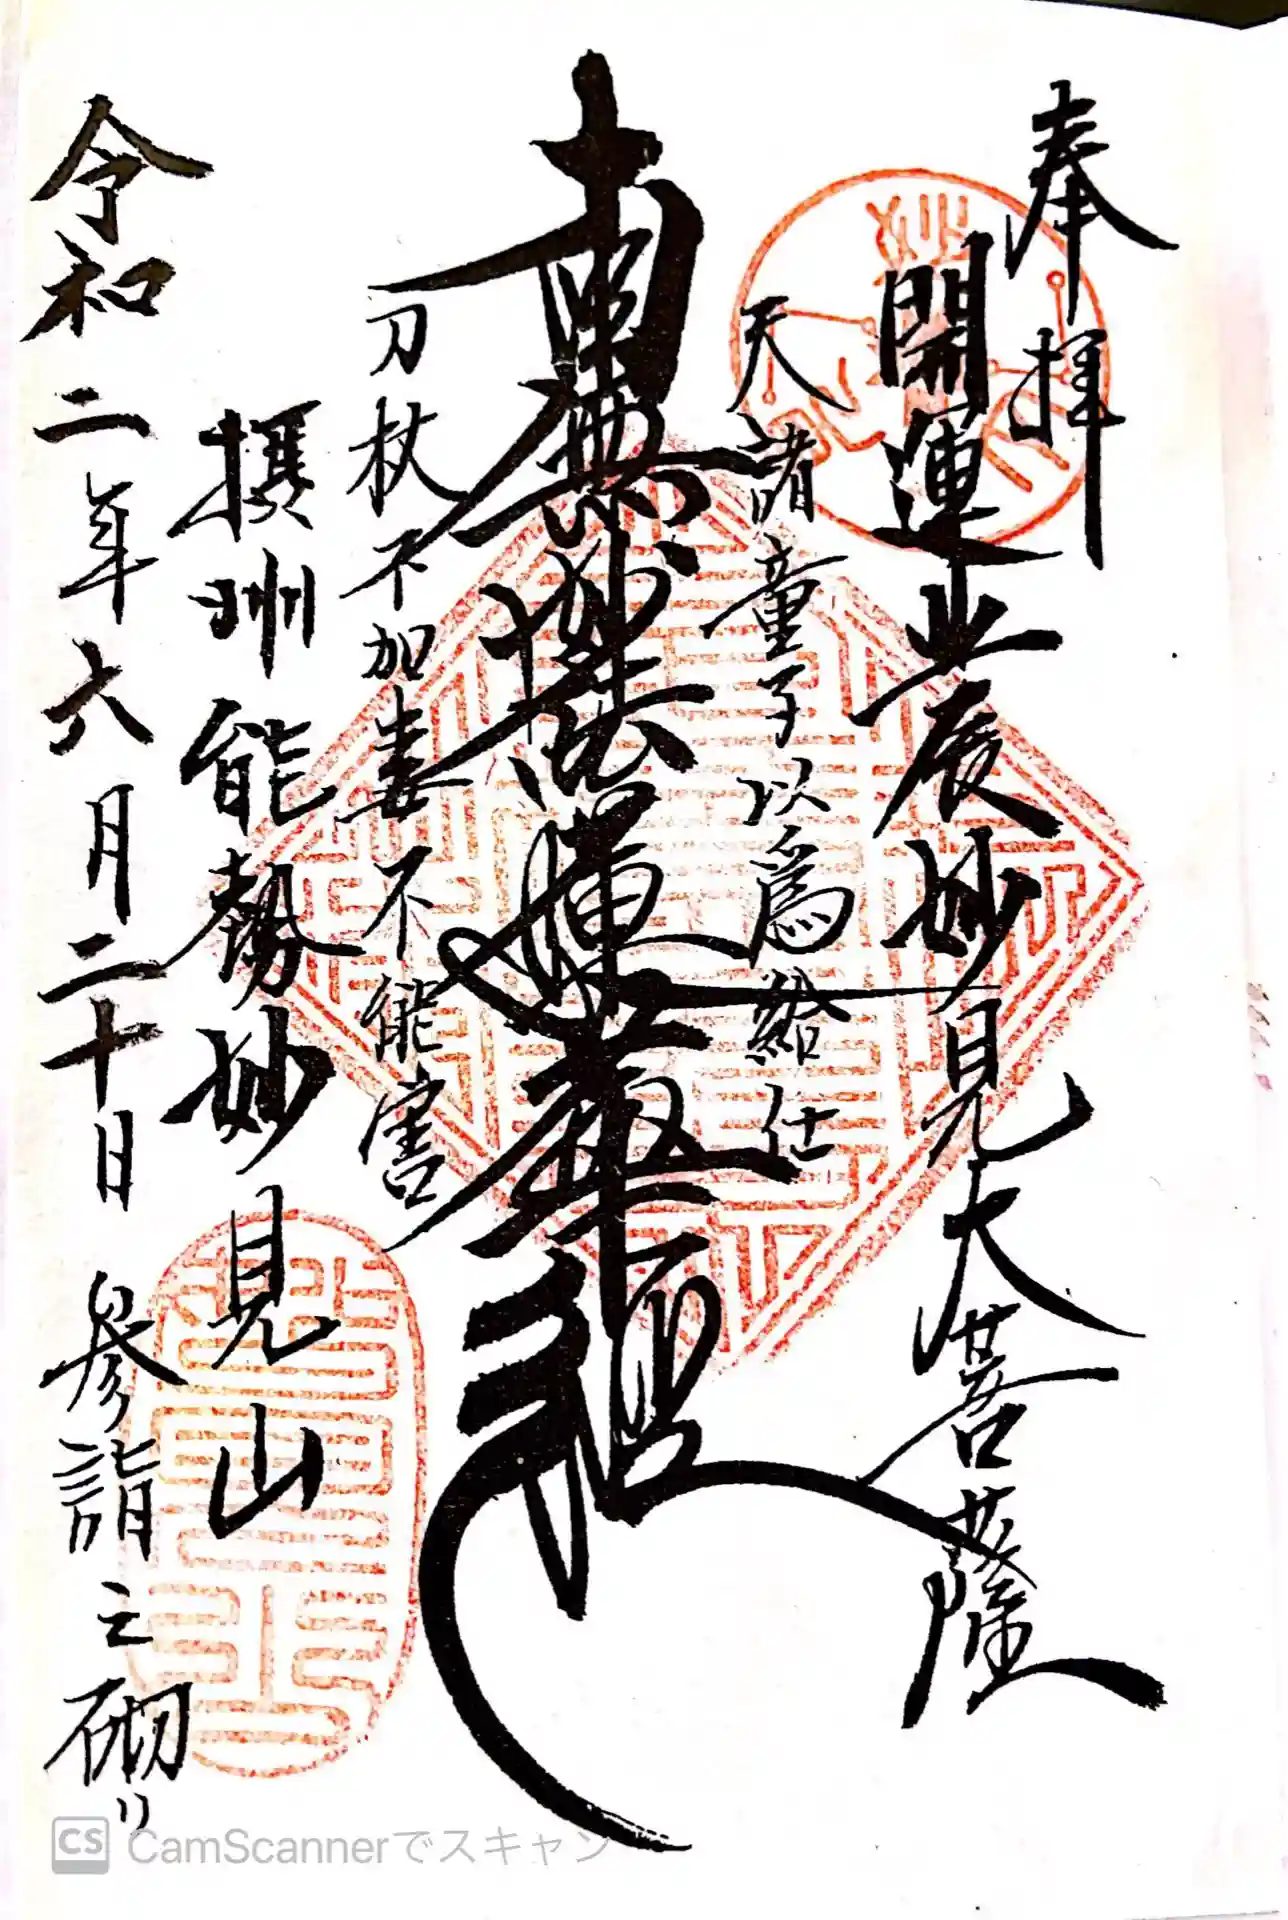 奉拝
開運北辰妙見大菩薩
天諸童子以為給仕
南無妙法蓮華経
刀杖不加毒不能害
摂州能勢妙見山
令和二年六月二十日 参詣之砌リ
CS CamScannerでスキャン